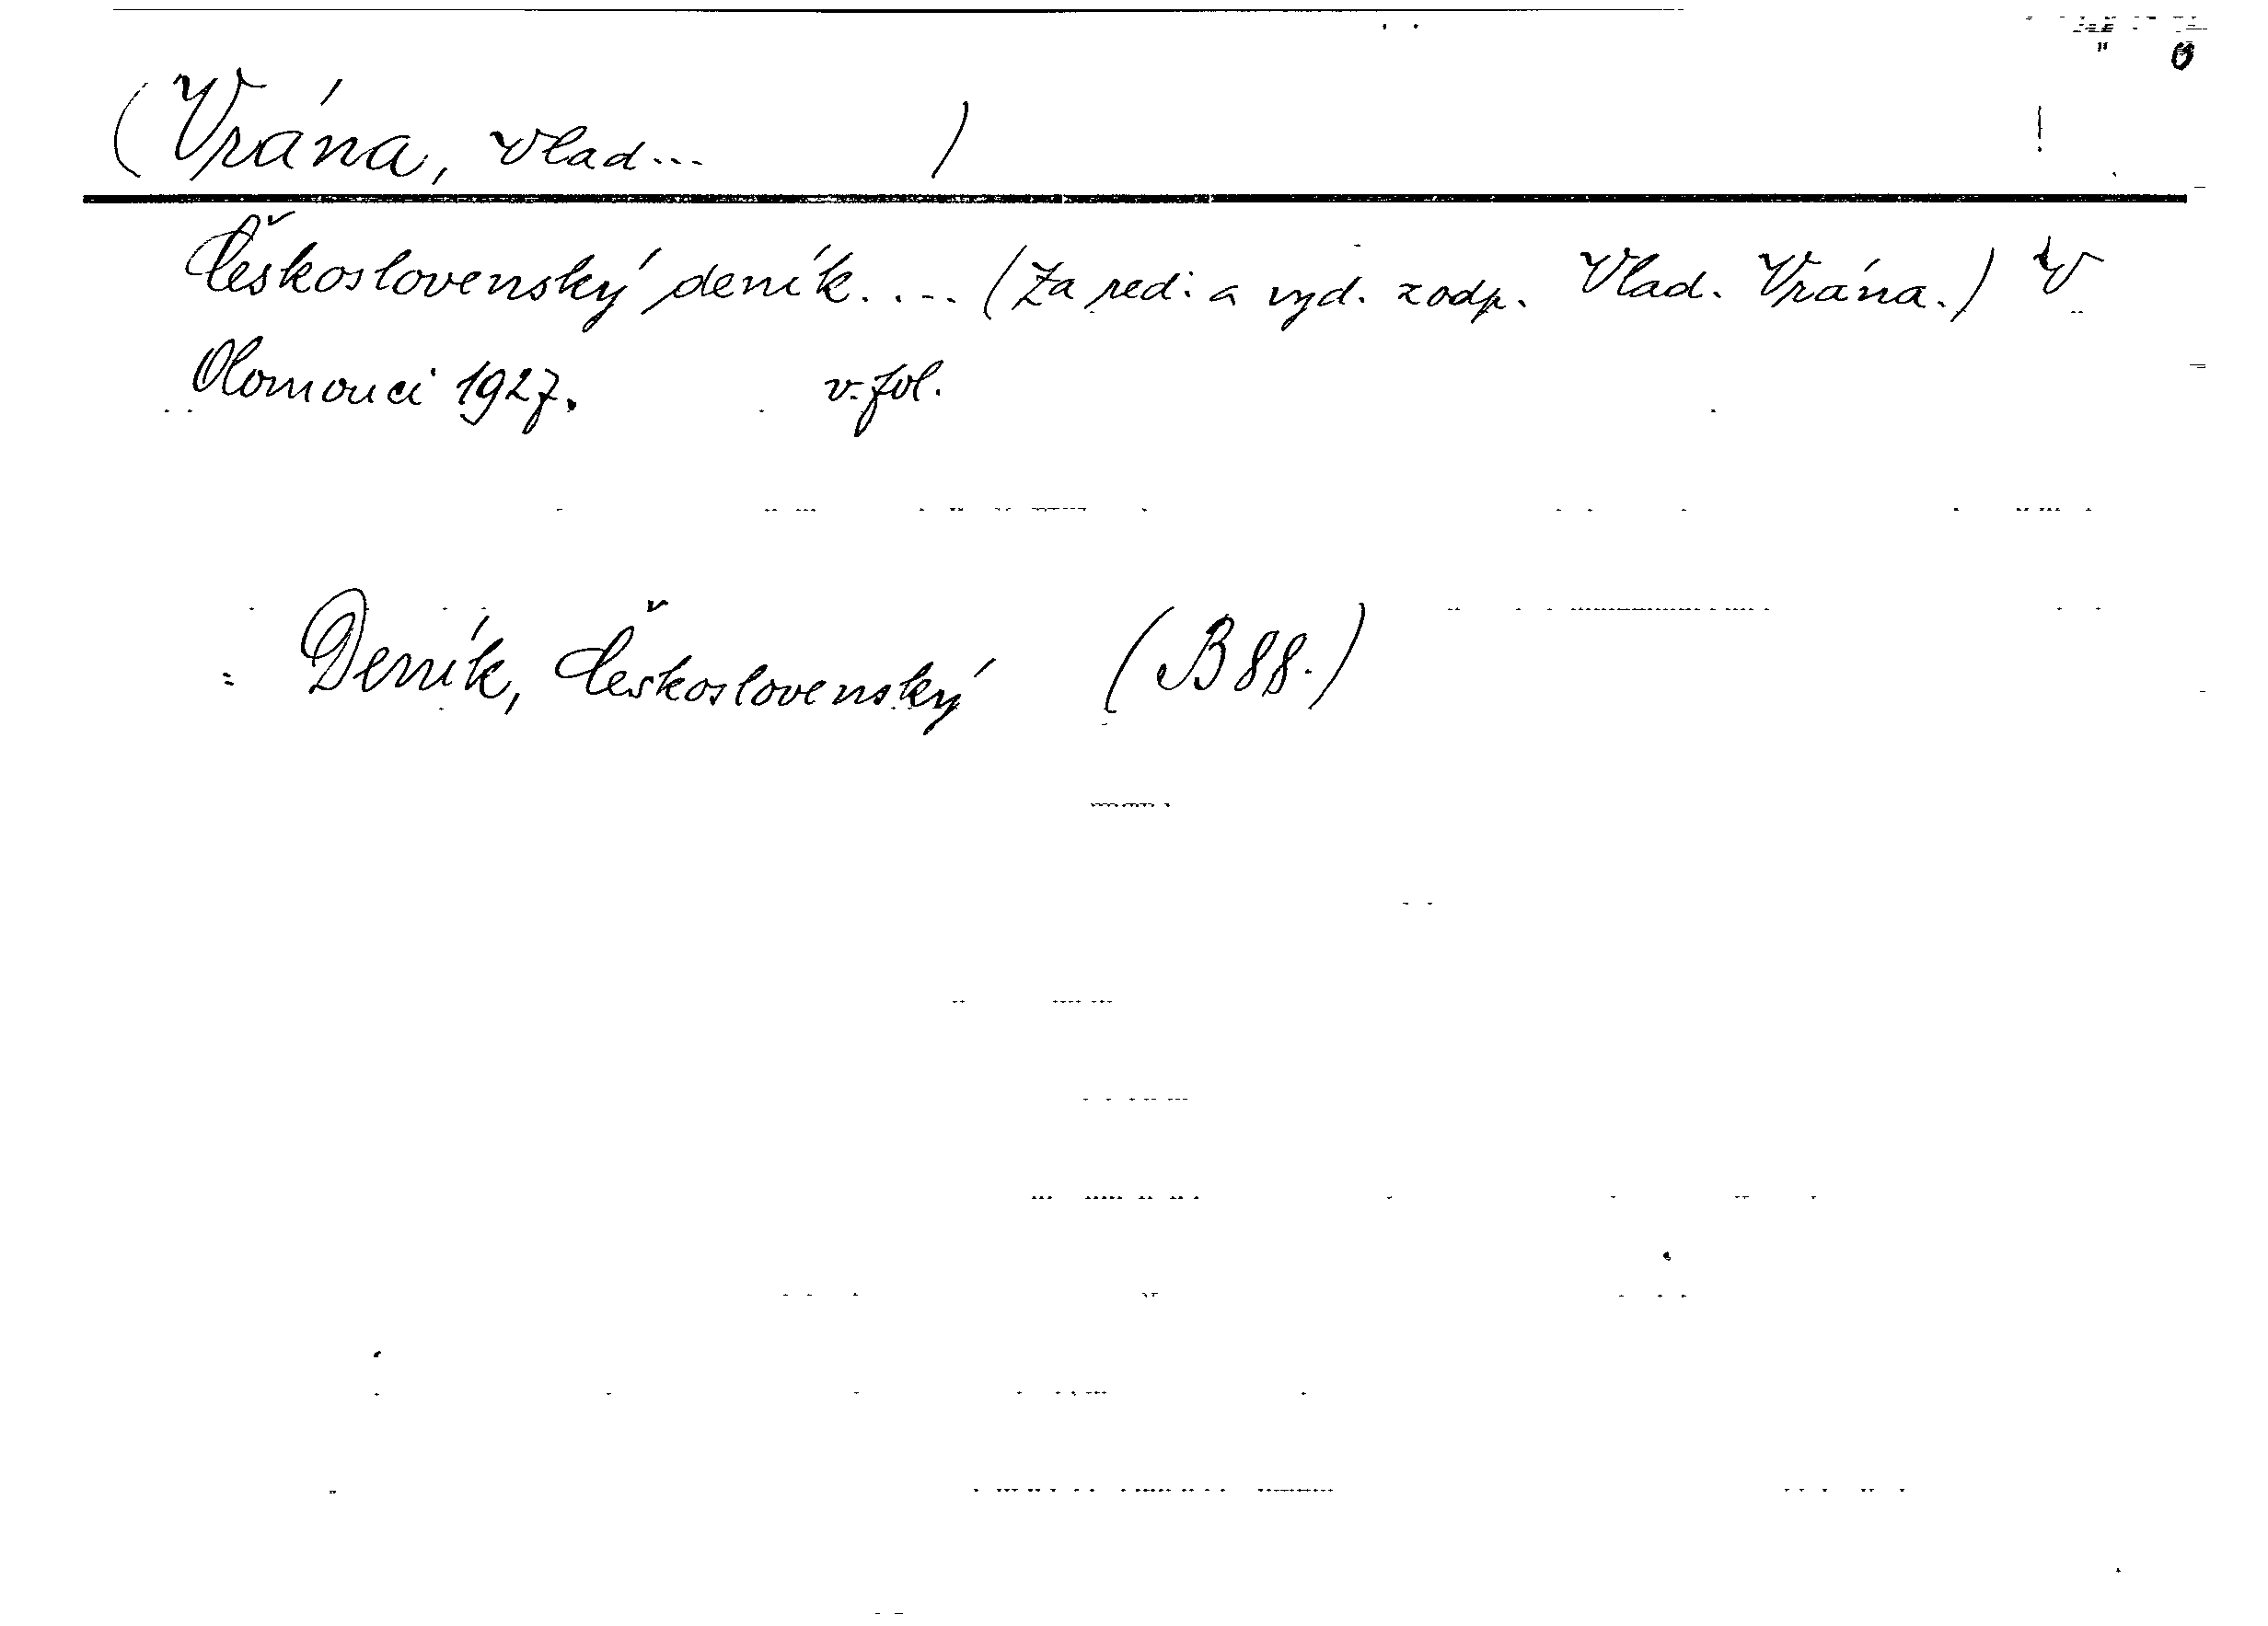 (Vrána, Vlad... )
Československý deník.... (Za red. a vyd. zodp. Vlad. Vrána.) V
Olomouci 1927. v. fol.
Deník, Československý (B 88.)